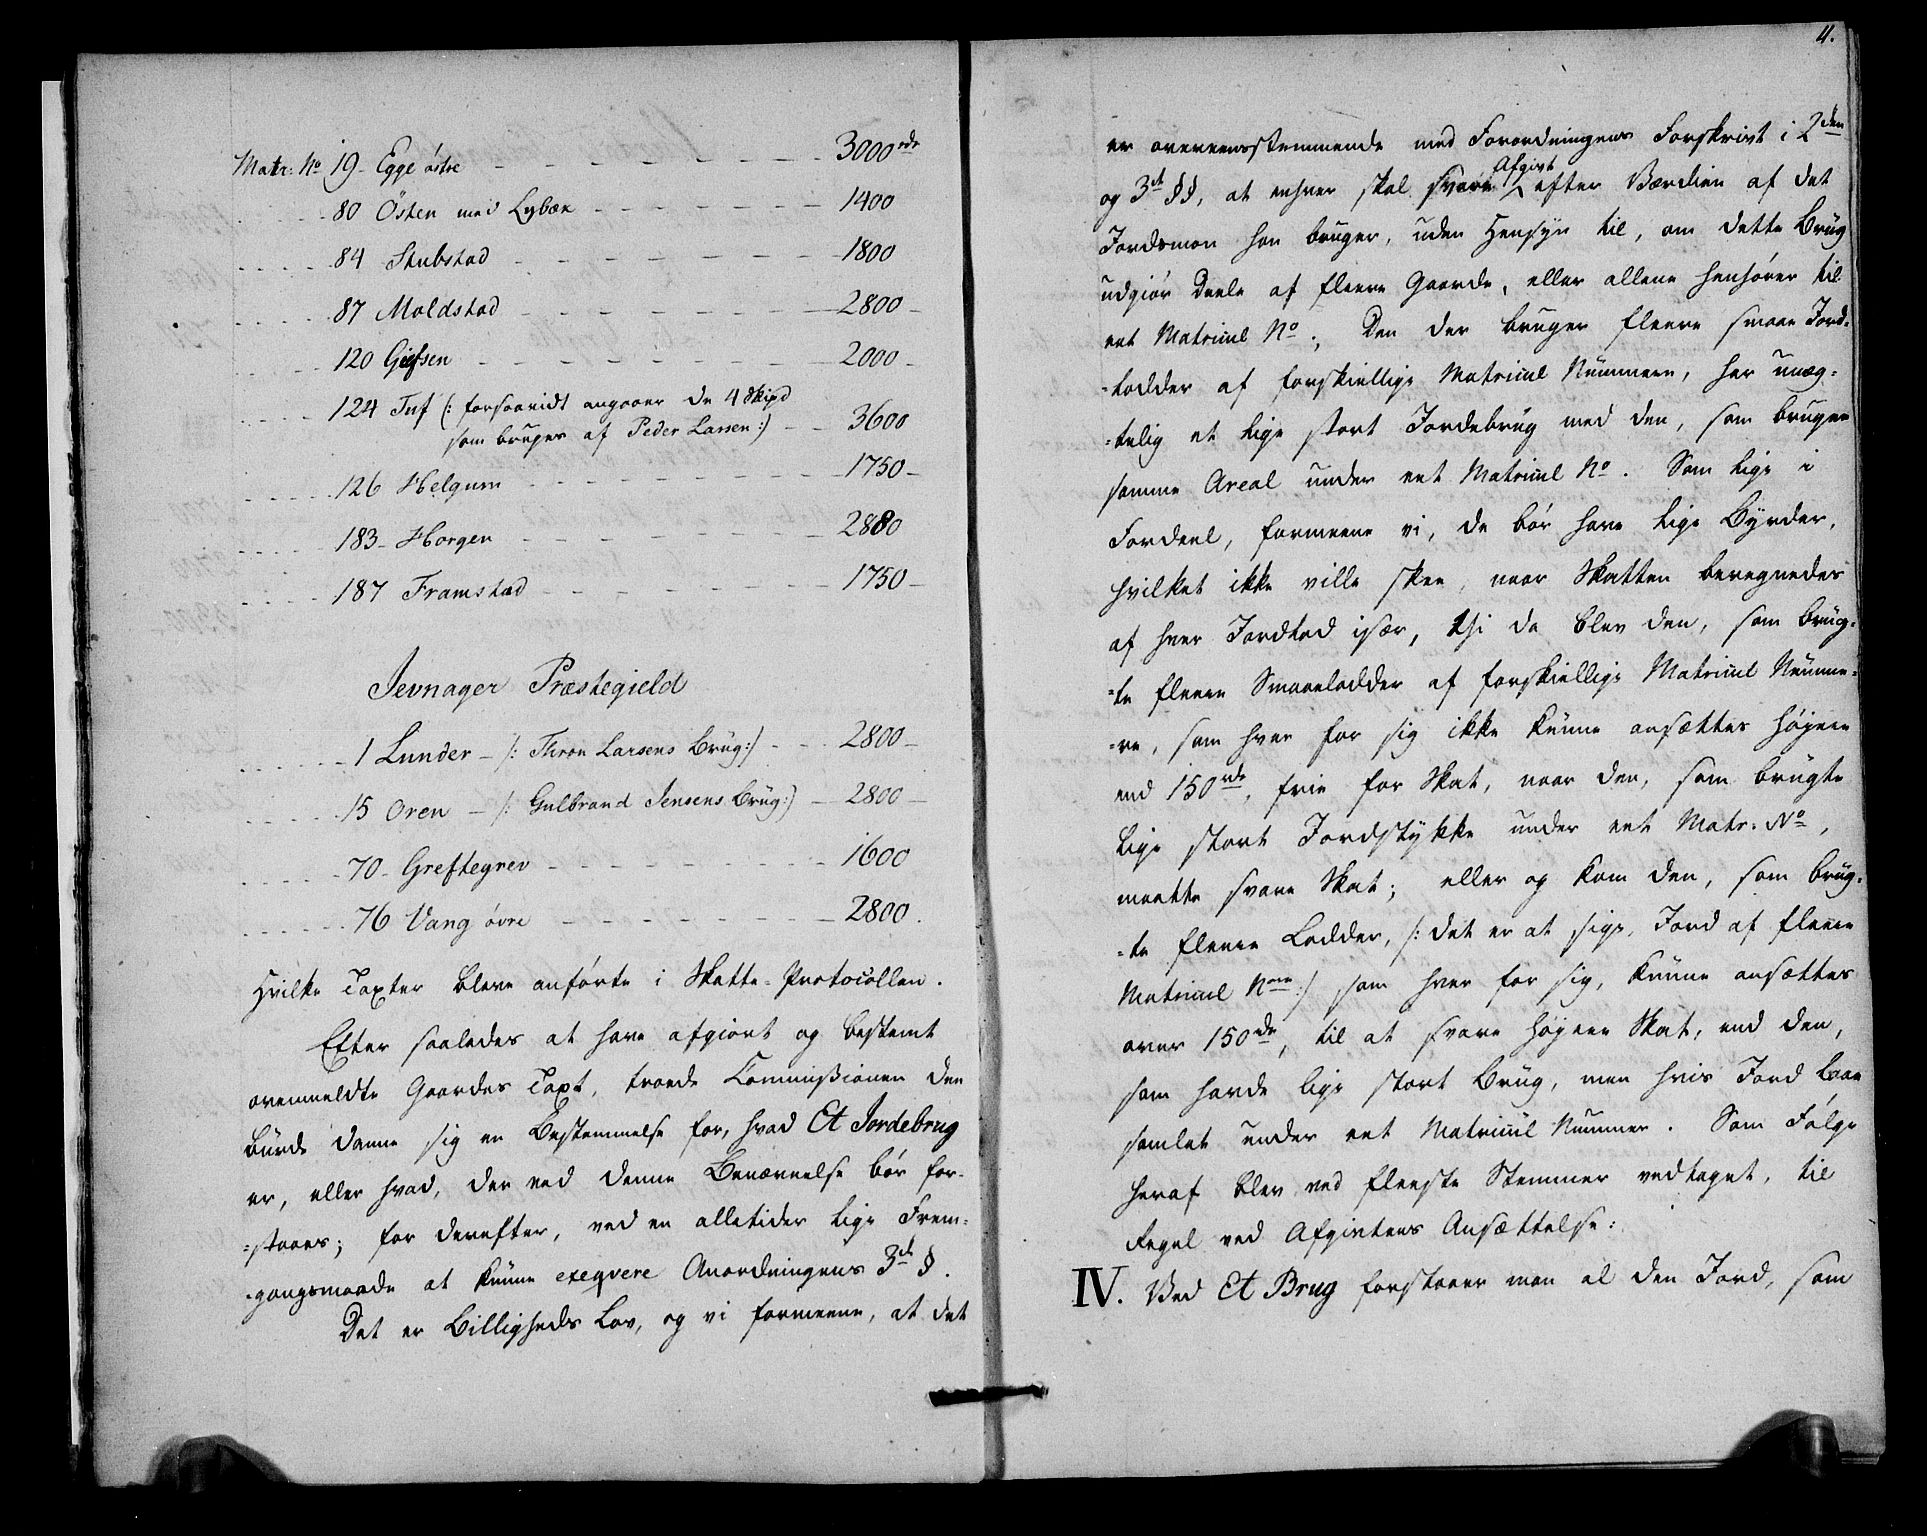 Matr: No 19 - Egge östre - - - - - - - 3000 rdr
- - - - 80 Østen med Lybæk - - - - - - 1400
- - - - 84 Stubstad - - - - - - - 1800
- - - - 87 Moldstad - - - - - - - 2800 -
- - - - 120 Giefsen - - - - - - - 2000 -
- - - - 124 Tuf (: forsaavidt angaaer de 4 Skipd
som bruges af Peder Larsen :) - - 3600
- - - - 126 Helgum - - - - - - - 1750 -
- - - - 183 - Horgen - - - - - - - 2880
- - - - 187 Framstad - - - - - - - 1750 -
Jevnager Præstegield
- - - - - 1 Lunder - /: Thron Larsens Brug :/ - - 2800 -
- - - - - 15 Oren - /: Gulbrand Jensens Brug :/ - 2800 -
- - - - - 70 - Greftegrev - - - - - - - 1600
- - - - - 76 Vang övre - - - - - - - 2800.
Hvilke Taxter bleve anførte i Skatte-Protocollen.
Efter saaledes at have afgiort og bestemt
ovenmeldte Gaardes Taxt, troede Commißionen den
burde danne sig en Bestemmelse for, hvad Et Jordebrug
er, eller hvad, der ved denne Benævnelse bör for-
=staaes; for derefter, ved en alletider lige Frem=
-gangsmaade at kunne exeqvere Anordningens 3die §.
Det er Billigheds Lov, og vi formeene, at det
4.
er overeensstemmende med Forordningens Forskrivt i 2den
og 3die §§, at enhver skal svare Afgivt efter Værdien af det
Jordsmon han bruger, uden Hensyn til, om dette Brug
udgiör Deele af fleere Gaarde, eller allene henhörer til
eet Matricul No; Den der bruger fleere smaae Jord-
-lodder af forskiellige Matricul Nummere, har unæg-
=telig et lige stort Jordebrug med den, som bruger
samme Areal under eet Matricul No. Som lige i
Fordeel, formeene vi, de bör have lige Byrder,
hvilket ikke ville skee, naar Skatten beregnedes
af hver Jordlod især, thi da blev den, som brug-
=te fleere Smaaelodder af forskiellige Matricul Numme-
=re, som hver for sig ikke kunne ansættes höyere
end 150 rdr, frie for Skat, naar den, som brugte
lige stort Jordstykke under eet Matr: No,
maatte svare Skat; eller og kom den, som brug-
=te fleere Lodder, /: det er at sige, Jord af fleere
Matricul Noere :/ som hver for sig, kunne ansættes
over 150 rdr, til at svare höyere Skat, end den,
som havde lige stort Brug, men hvis Jord laae
samlet under eet Matricul Nummer. Som Fölge
heraf blev ved fleeste Stemmer vedtaget, til
Regel ved Afgivtens Ansættelse:
IV. Ved Et Brug forstaaer man al den Jord, som